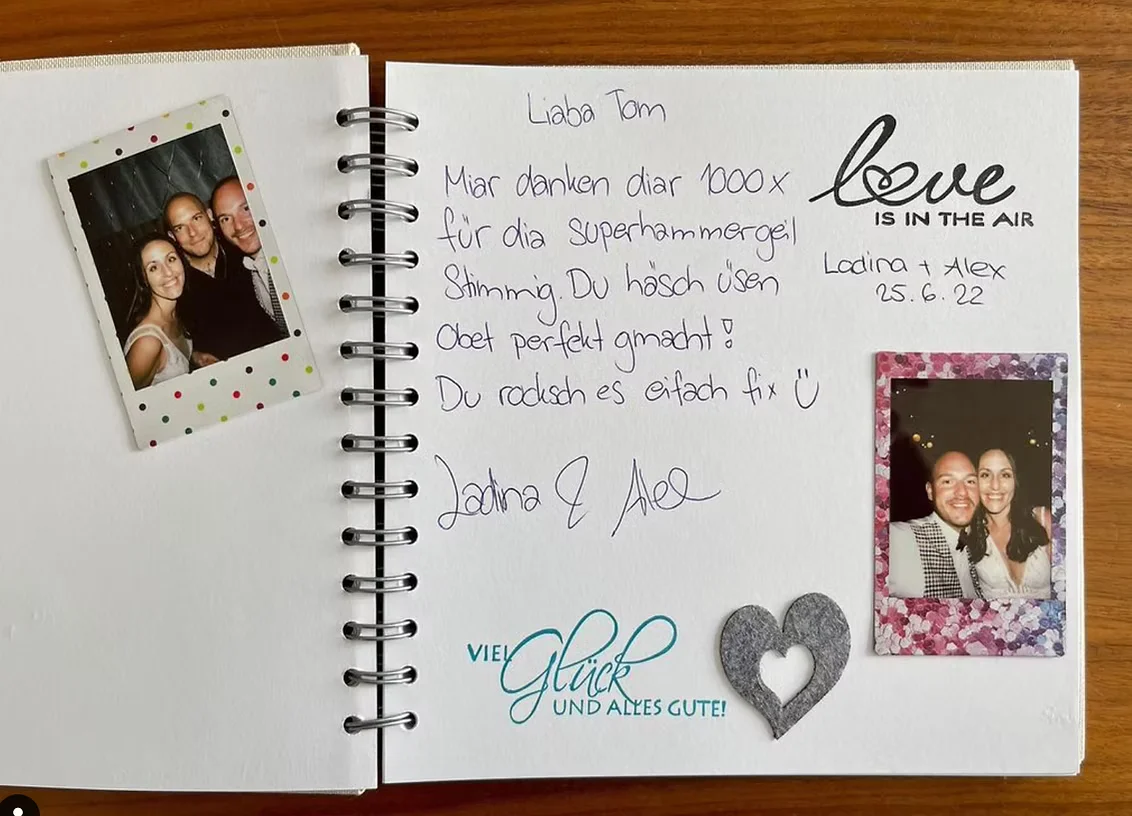 Liaba Tom
Miar danken diar 1000x
für dia superhammergeil
Stimmig. Du häsch üsen
Obet perfekt gmacht!
Du rocksch es eifach fix Ü
Ladina & Alex
love
IS IN THE AIR
Ladina + Alex
25.6.22
VIEL
Glück
UND ALLES GUTE!